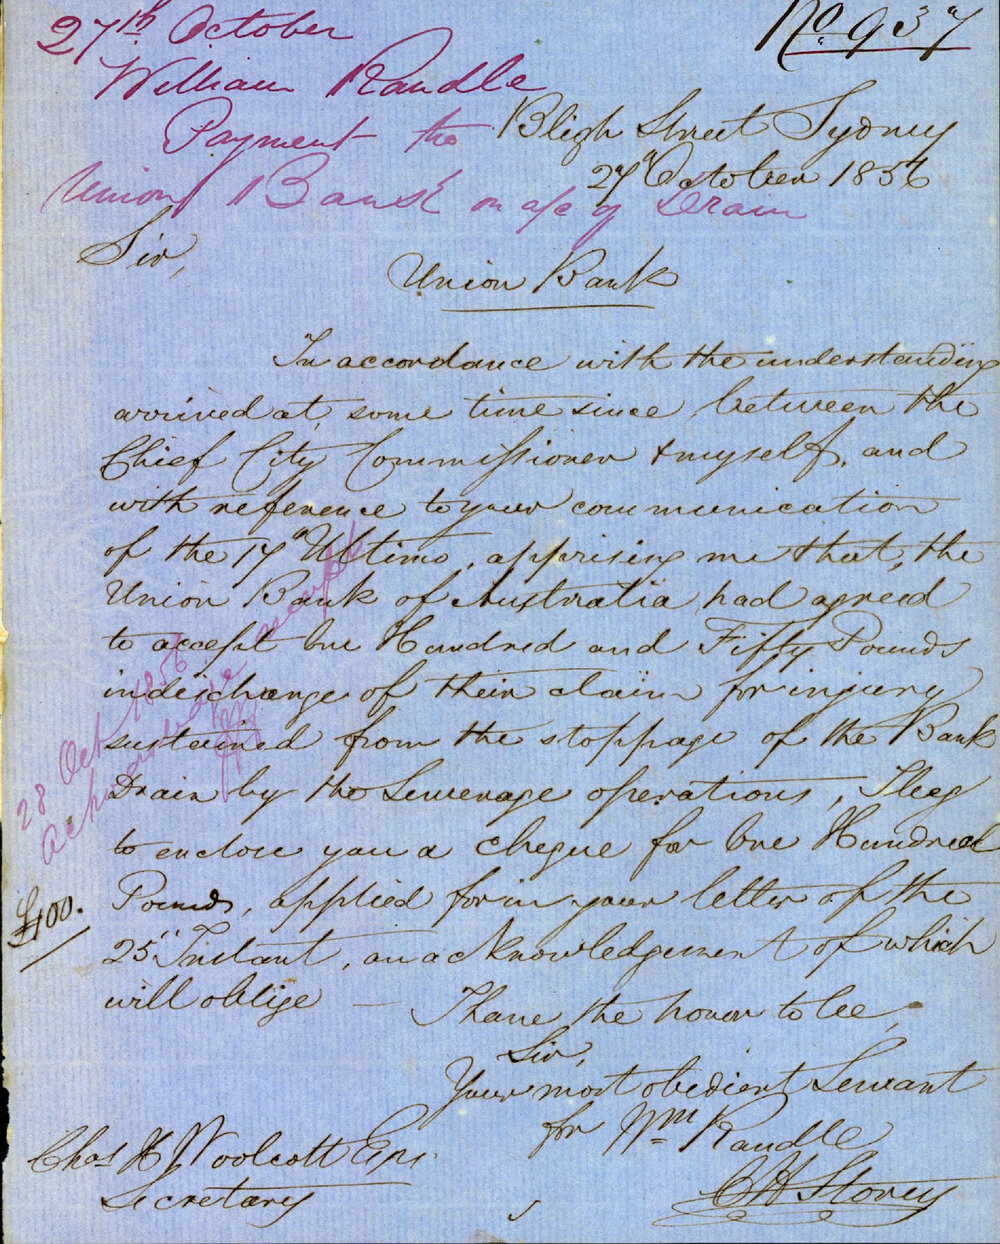 27th October
William Randle
Payment to
Union Bank on a/c of Drain
No. 937
Bligh Street Sydney
27th October 1856
Sir,
Union Bank
In accordance with the understanding
arrived at, some time since between the
Chief City Commissioner & myself, and
with reference to your communication
of the 17th Ultimo, apprising me that, the
Union Bank of Australia, had agreed
to accept One Hundred and Fifty Pounds
in discharge of their claim for injury
sustained from the stoppage of the Bank
Drain by the Sewerage operations, I beg
to enclose you a cheque for One Hundred
Pounds, applied for in your letter of the
25th Instant, an acknowledgement of which
will oblige —
£100.
28 Oct 1856
acknowledge receipt
I have the honor to be,
Sir,
Your most obedient Servant
for Wm Randle
C H Storey
Chas H Woolcott Esq.
Secretary